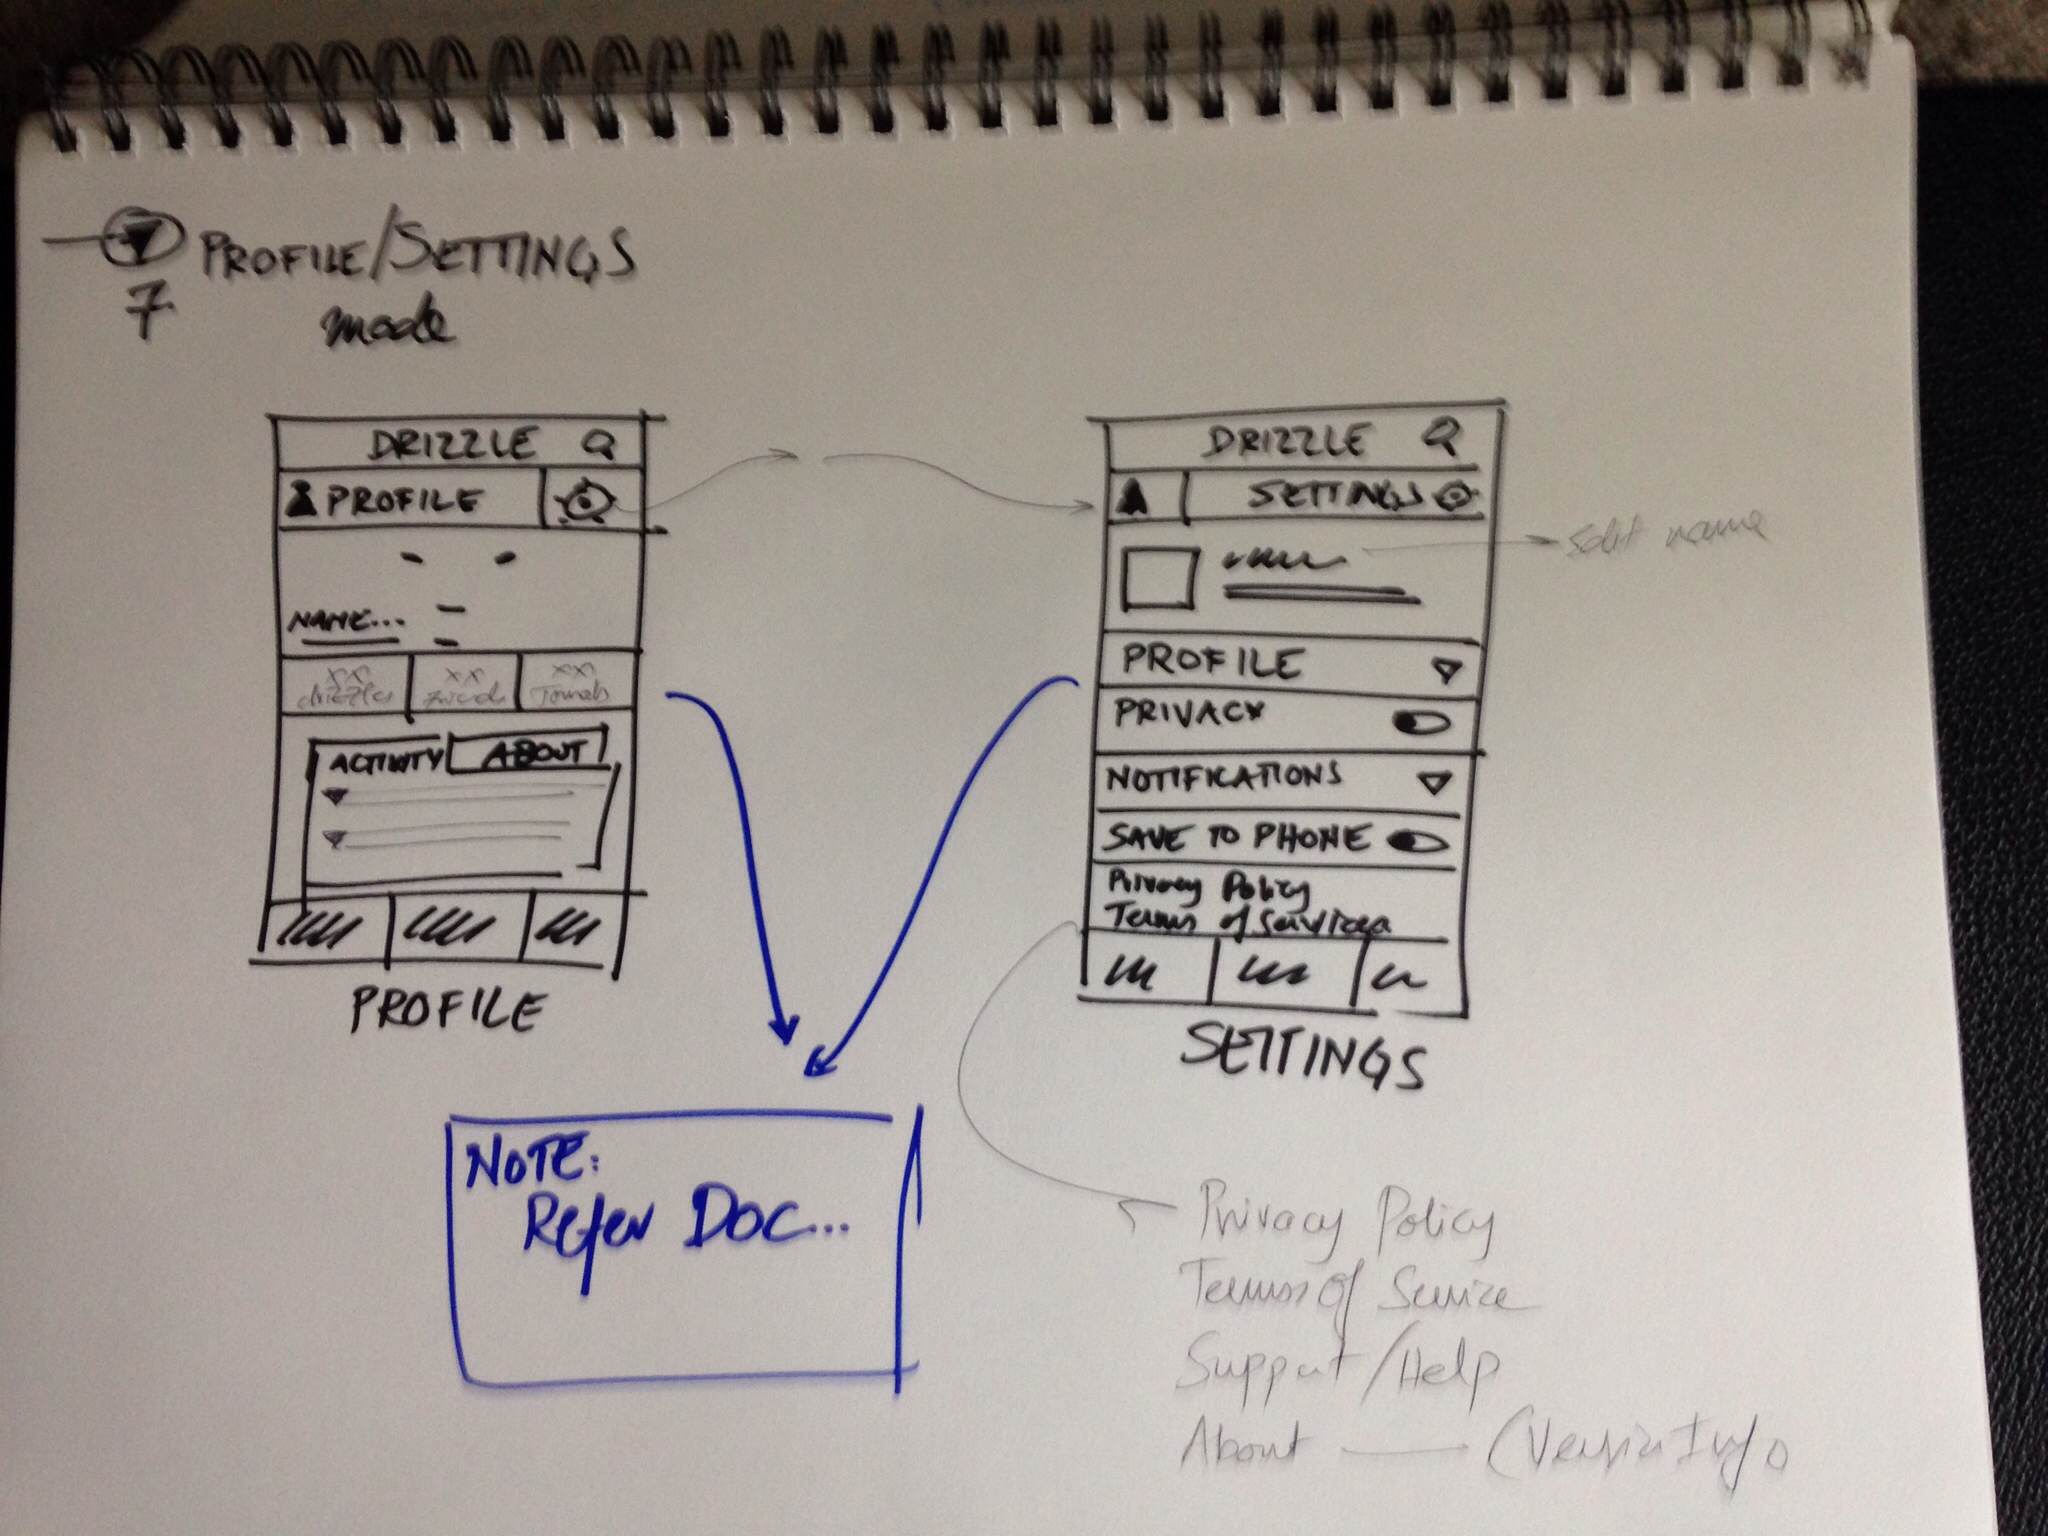 7
PROFILE/SETTINGS
mode
DRIZZLE
PROFILE
NAME...
xx xx xx
drizzles friends
ACTIVITY ABOUT
PROFILE
DRIZZLE
SETTINGS
edit name
PROFILE
PRIVACY
NOTIFICATIONS
SAVE TO PHONE
Privacy Policy
Terms of Services
SETTINGS
NOTE:
Refer DOC...
Privacy Policy
Terms Of Service
Support/Help
About — (Version Info